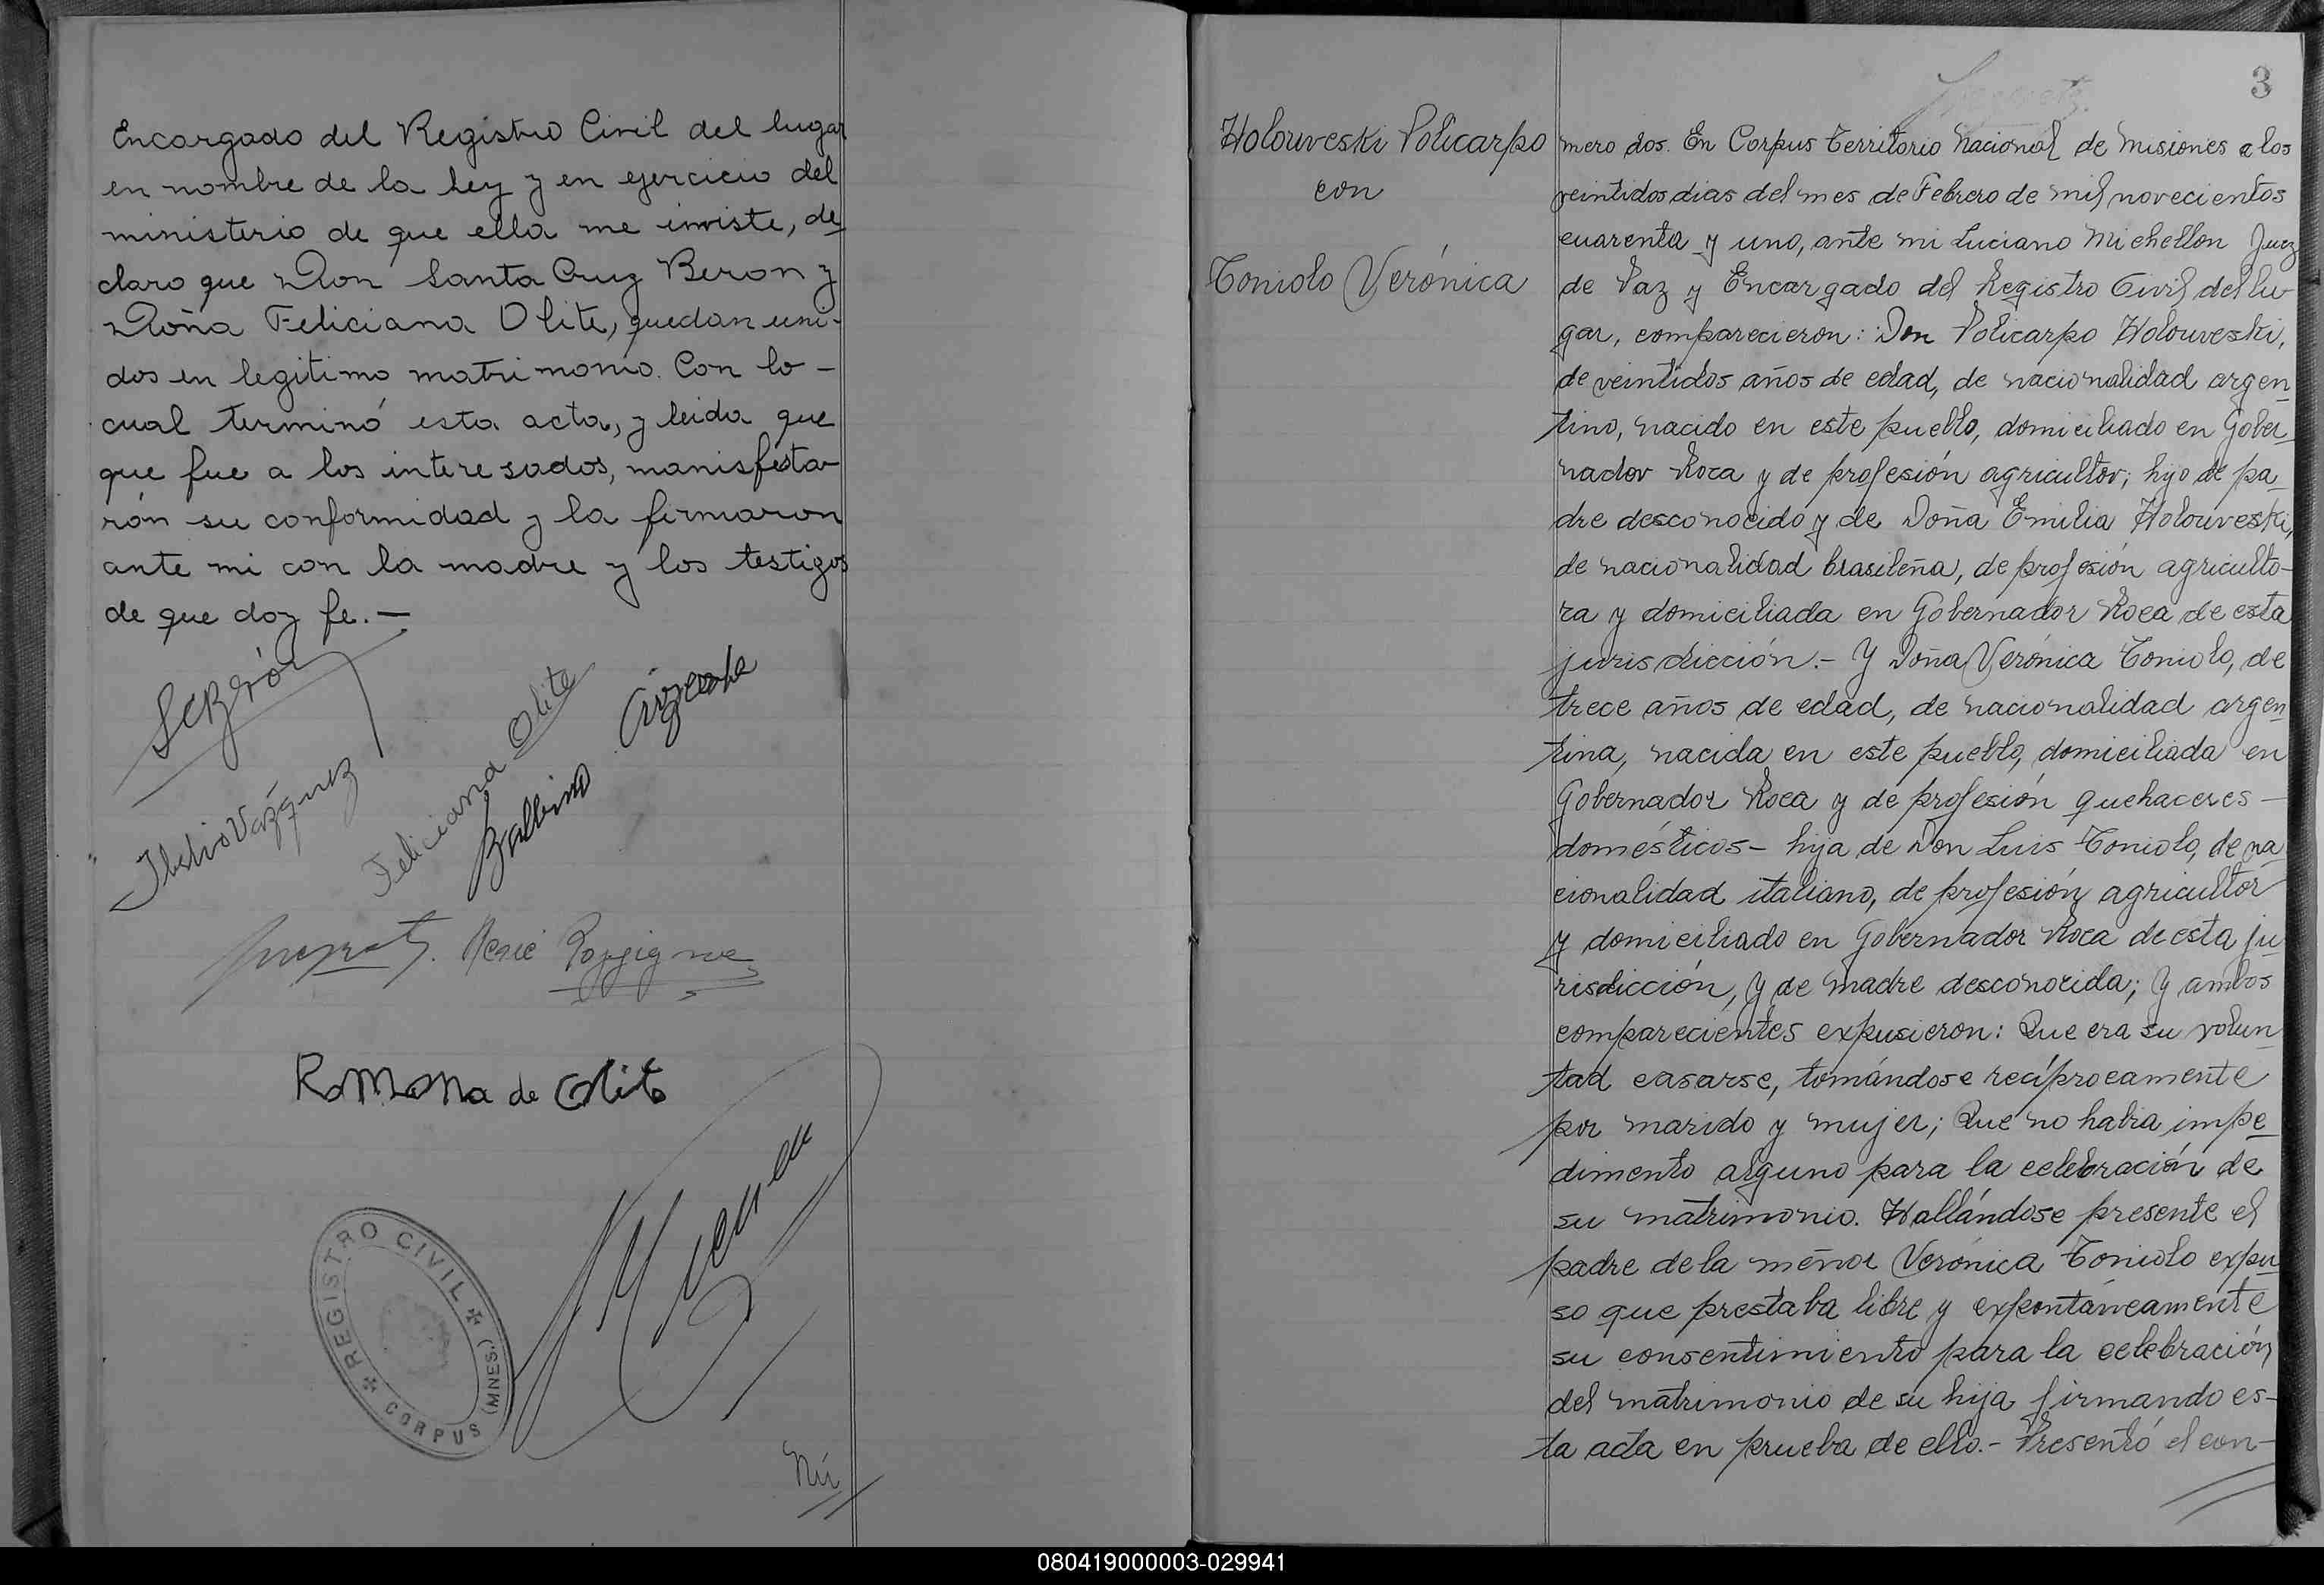 Encargado del Registro Civil del lugar
en nombre de la ley y en ejercicio del
ministerio de que ella me inviste, de
claro que Don Santa Cruz Beron y
Doña Feliciana Olite, quedan uni-
dos en legitimo matrimonio. Con lo-
cual terminó esta acta, y leida que
que fue a los interesados, manisfesta-
rón su conformidad y la firmaron
ante mi con la madre y los testigos
de que doy fe.—
SCBerón
Feliciana Olite
Balbino
Vázquez
René
Romona de Olite
REGISTRO CIVIL
CORPUS (MNES.)
Nú
3
Holouveski Policarpo
con
Toniolo Verónica
mero dos. En Corpus Territorio Nacional de Misiones a los
veintidos dias del mes de Febrero de mil novecientos
cuarenta y uno, ante mi Luciano Michellon Juez
de Paz y Encargado del Registro Civil del lu-
gar, comparecieron: Don Policarpo Holouveski,
de veintidos años de edad, de nacionalidad argen
tino, nacido en este pueblo, domiciliado en Gober
nador Roca y de profesión agricultor; hijo de pa
dre desconocido y de Doña Emilia Holouveski,
de nacionalidad brasileña, de profesión agriculto-
ra y domiciliada en Gobernador Roca de esta
jurisdicción.- Y Doña Verónica Toniolo, de
trece años de edad, de nacionalidad argen
tina, nacida en este pueblo, domiciliada en
Gobernador Roca y de profesión quehaceres-
domésticos- hija de Don Luis Toniolo, de na
cionalidad italiano, de profesión agricultor
y domiciliado en Gobernador Roca de esta ju
risdicción, y de madre desconocida; Y ambos
comparecientes expusieron: Que era su volun
tad casarse, tomándose recíprocamente
por marido y mujer; Que no habia impe
dimento alguno para la celebración de
su matrimonio. Hallándose presente el
padre de la menor Verónica Toniolo expu
so que prestaba libre y expontáneamente
su consentimiento para la celebración
del matrimonio de su hija firmando es-
ta acta en prueba de ello.- Presentó el con-
080419000003-029941